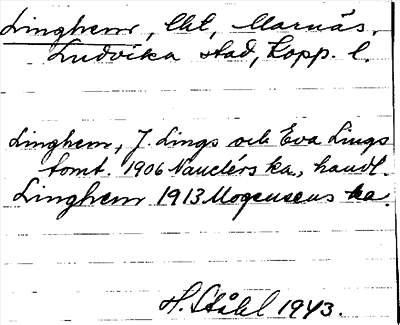 Linghem, lht, Marnäs,
Ludvika stad, Kopp. l.
Linghem, J. Lings och Eva Lings
tomt. 1906 Nauclérs ka, handl.
Linghem 1913 Mogensens ka.
H. Ståhl 1943.